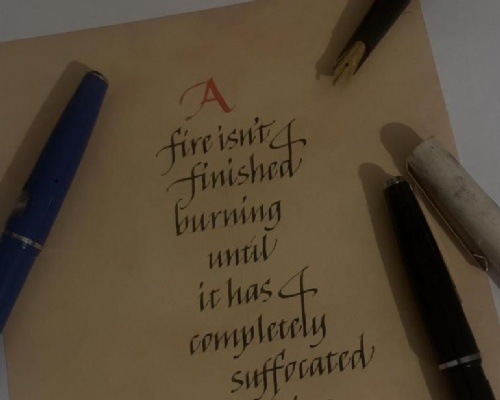 A
fire isn't
finished
burning
until
it has
completely
suffocated